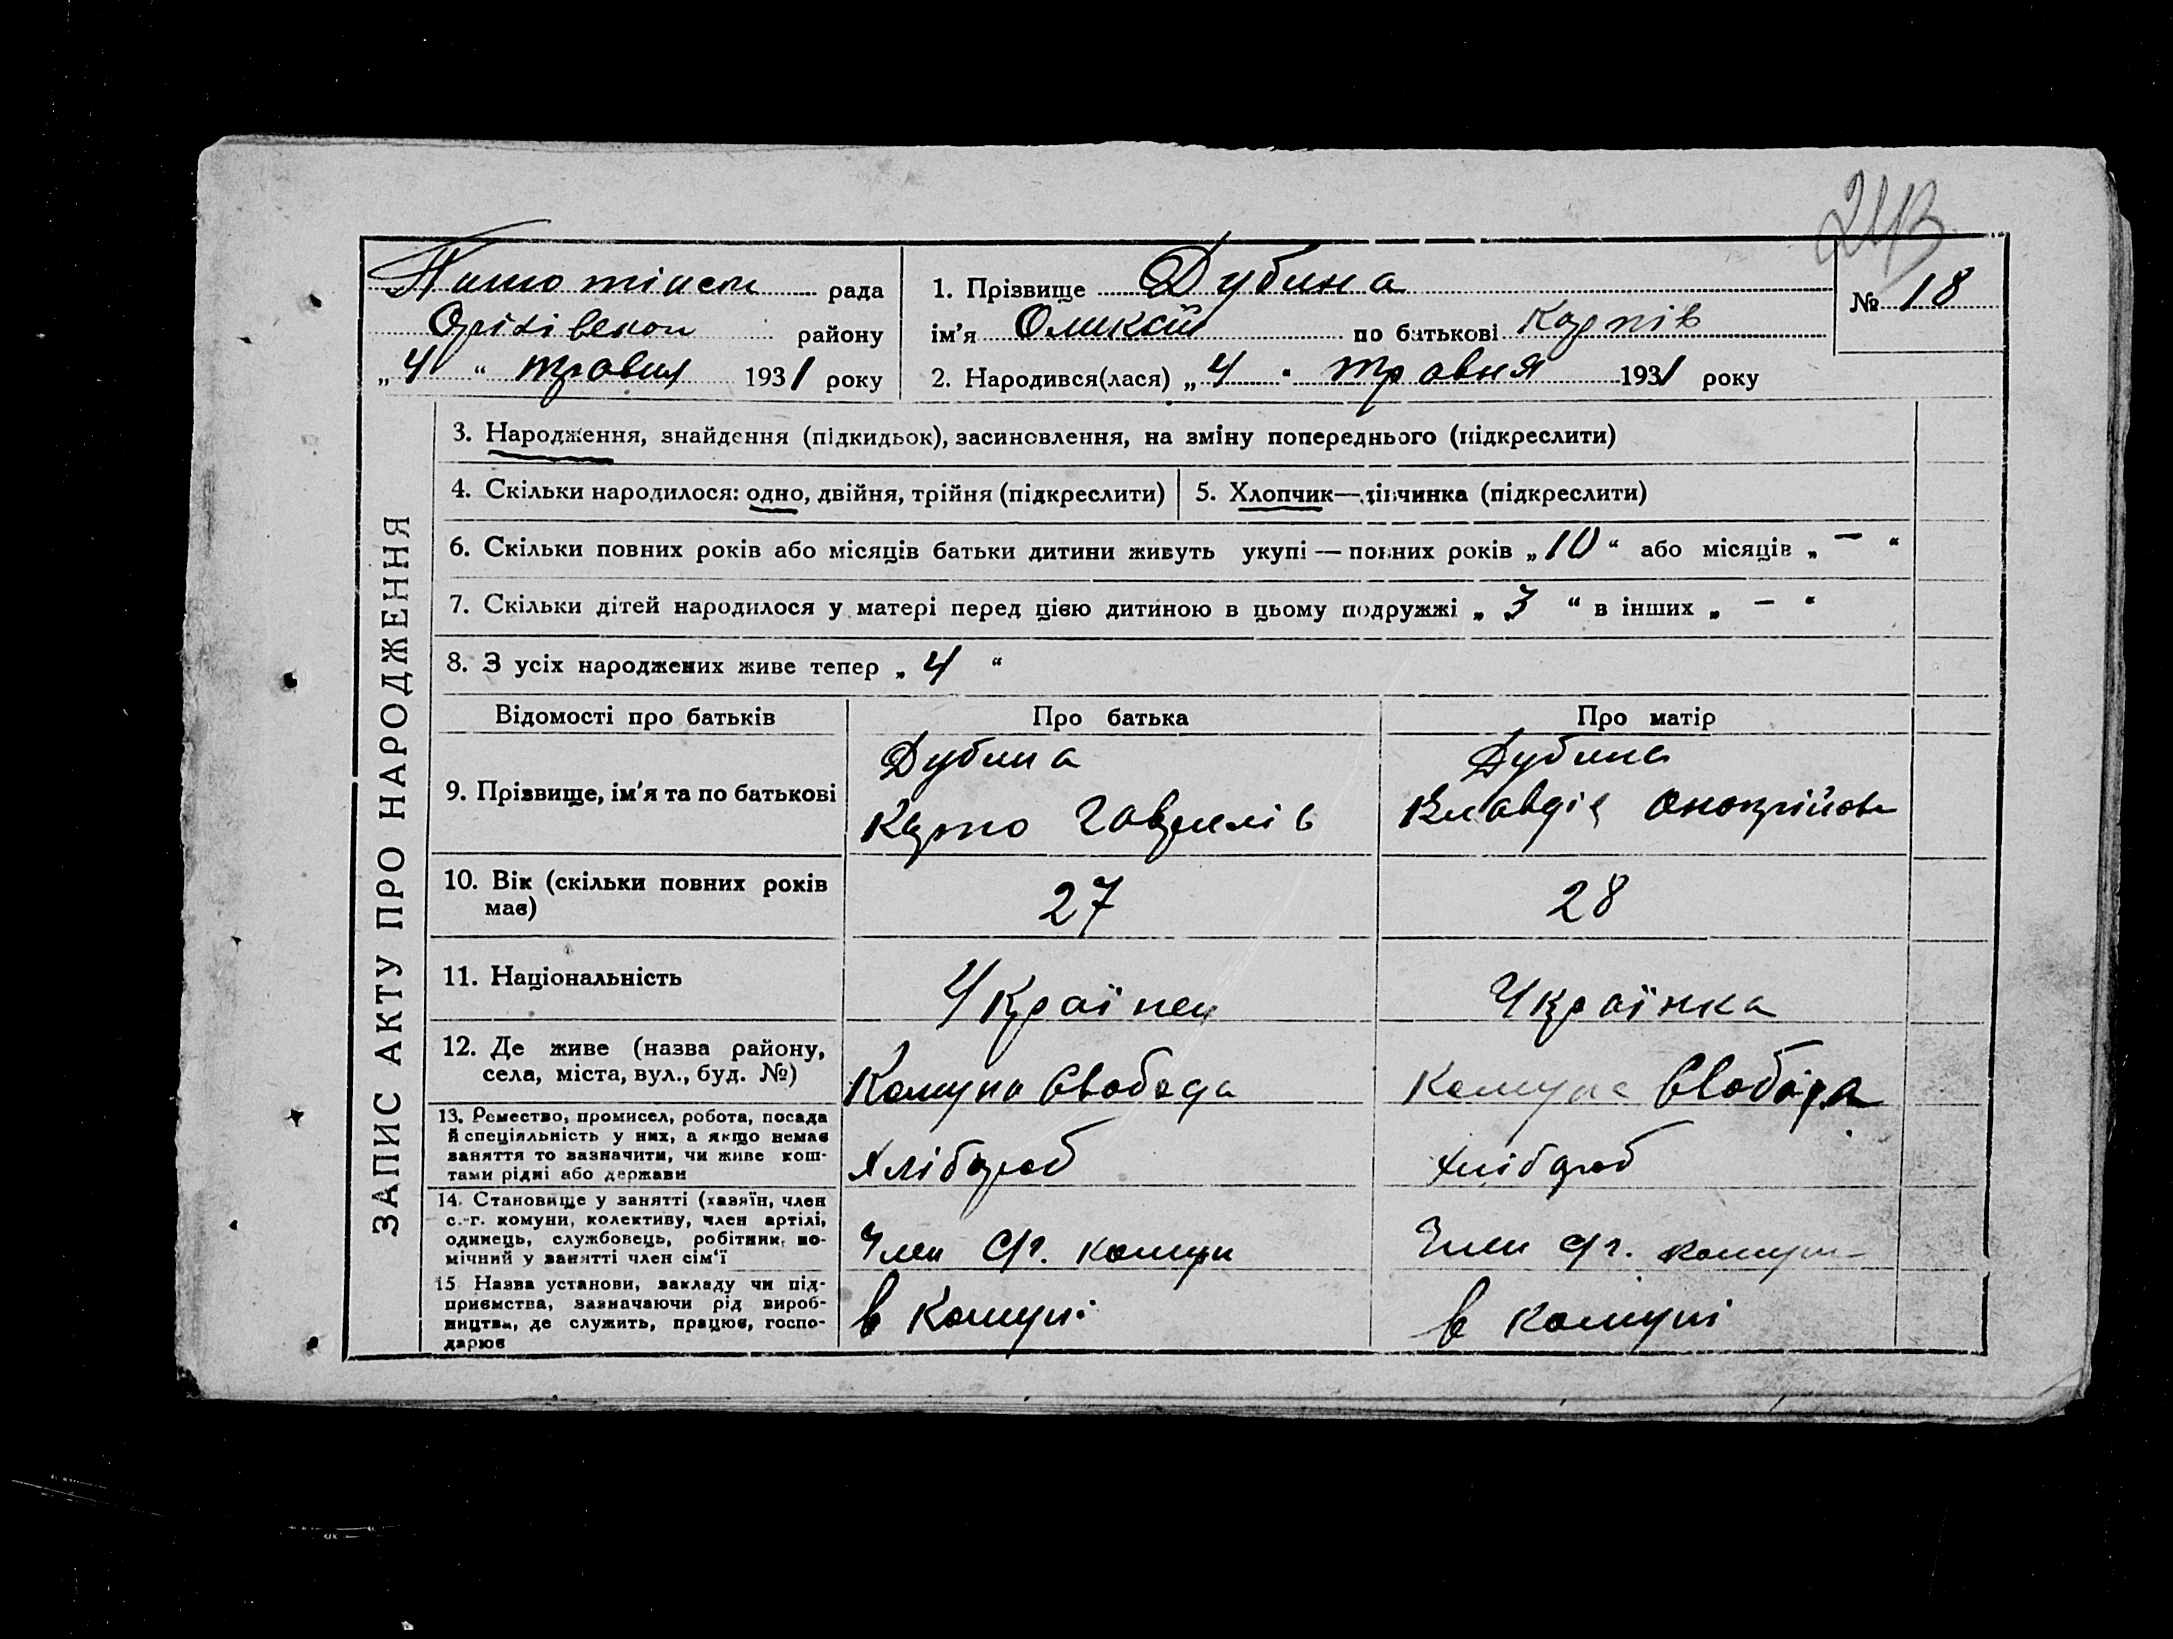 213
рада
1. Прізвище Дубина
№ 18
району
ім'я Олексій по батькові Карпів
„4“ травня 1931 року
2. Народився(лася) „4“ травня 1931 року
ЗАПИС АКТУ ПРО НАРОДЖЕННЯ
3. Народження, знайдення (підкидьок), засиновлення, на зміну попереднього (підкреслити)
4. Скільки народилося: одно, двійня, трійня (підкреслити)
5. Хлопчик—дівчинка (підкреслити)
6. Скільки повних років або місяців батьки дитини живуть укупі — повних років „10“ або місяців „—“
7. Скільки дітей народилося у матері перед цією дитиною в цьому подружжі „3“ в інших „—“
8. З усіх народжених живе тепер „4“
Відомості про батьків
Про батька
Про матір
9. Прізвище, ім'я та по батькові
Дубина
Карпо Гаврилів
Дубина
Клавдія
10. Вік (скільки повних років
має)
27
28
11. Національність
Українец
Українка
12. Де живе (назва району,
села, міста, вул., буд. №)
Комуна Свобода
Комуна Свобода
13. Ремество, промисел, робота, посада
й спеціяльність у них, а якщо немає
заняття то зазначити, чи живе кош-
тами рідні або держави
Хлібороб
Хлібороб
14. Становище у занятті (хазяїн, член
с.-г. комуни, колективу, член артілі,
одинець, службовець, робітник, по-
мічний у занятті член сім'ї
Член с/г. комуни
Член с/г. комуни
15 Назва установи, закладу чи під-
приємства, зазначаючи рід вироб-
ництва, де служить, працює, госпо-
дарює
в комуні
в комуні